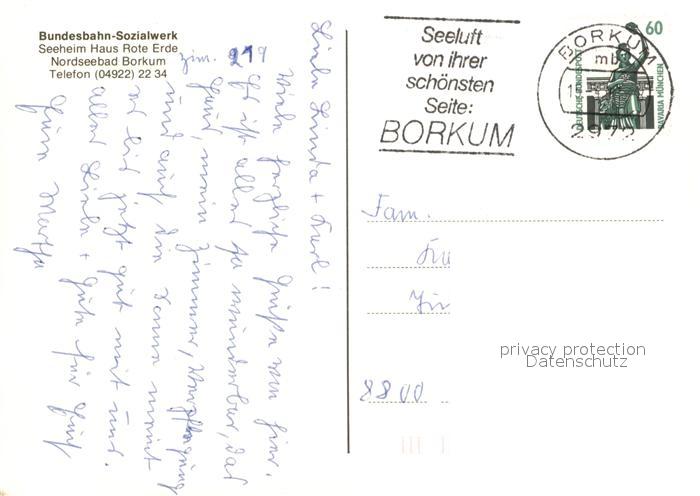 Bundesbahn-Sozialwerk
Seeheim Haus Rote Erde
Nordseebad Borkum
Telefon (04922) 22 34
Zim. 219
Liebe Linda + Karl!
viele herzliche Grüße von hier.
Es ist alles so wunderbar, das
Haus, mein Zimmer, Verpflegung
und auch die Sonne meint
es bis jetzt gut mit uns.
alles Liebe + Gute für Euch
Eure Martha
Seeluft
von ihrer
schönsten
Seite:
BORKUM
BORKUM
mb
2972
60
DEUTSCHE BUNDESPOST
BAVARIA MÜNCHEN
Fam.
8800
privacy protection
Datenschutz